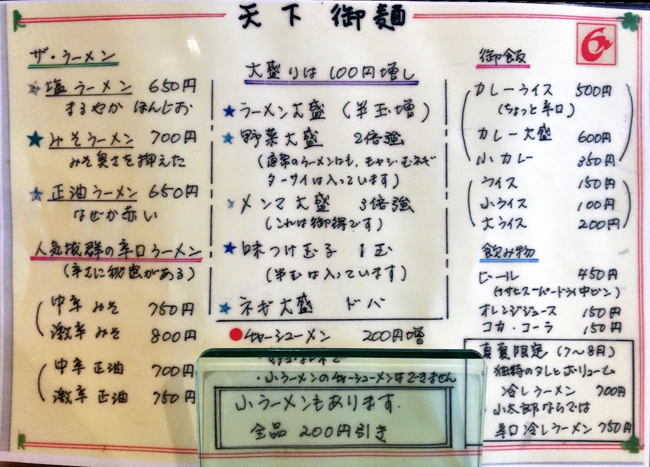 天下御麺
ザ・ラーメン
塩ラーメン 650円
まろやか ほんじお
みそラーメン 700円
みそ臭さを押えた
正油ラーメン 650円
なぜか赤い
人気抜群の辛口ラーメン
(辛さに秘密がある)
中辛みそ 750円
激辛みそ 800円
中辛正油 700円
激辛正油 750円
大盛りは100円増し
ラーメン大盛 (半玉増)
野菜大盛 2倍強
(通常のラーメンにも、モヤシ・ムネギ
ターサイは入っています)
メンマ大盛 3倍強
(これは御得です)
味つけ玉子 1玉
(半玉は入っています)
ネギ大盛 ドバ
チャーシューメン 200円増
・小ラーメンのチャーシューメンはできません
小ラーメンもあります.
全品 200円引き
御飯
カレーライス 500円
(ちょっと辛口)
カレー大盛 600円
小カレー 350円
ライス 150円
小ライス 100円
大ライス 200円
飲み物
ビール 450円
(アサヒスーパードライ中ビン)
オレンジジュース 150円
コカ・コーラ 150円
真夏限定 (7〜8月)
独特のタレとボリューム
冷しラーメン 700円
・小太郎ならでは
辛口冷しラーメン 750円